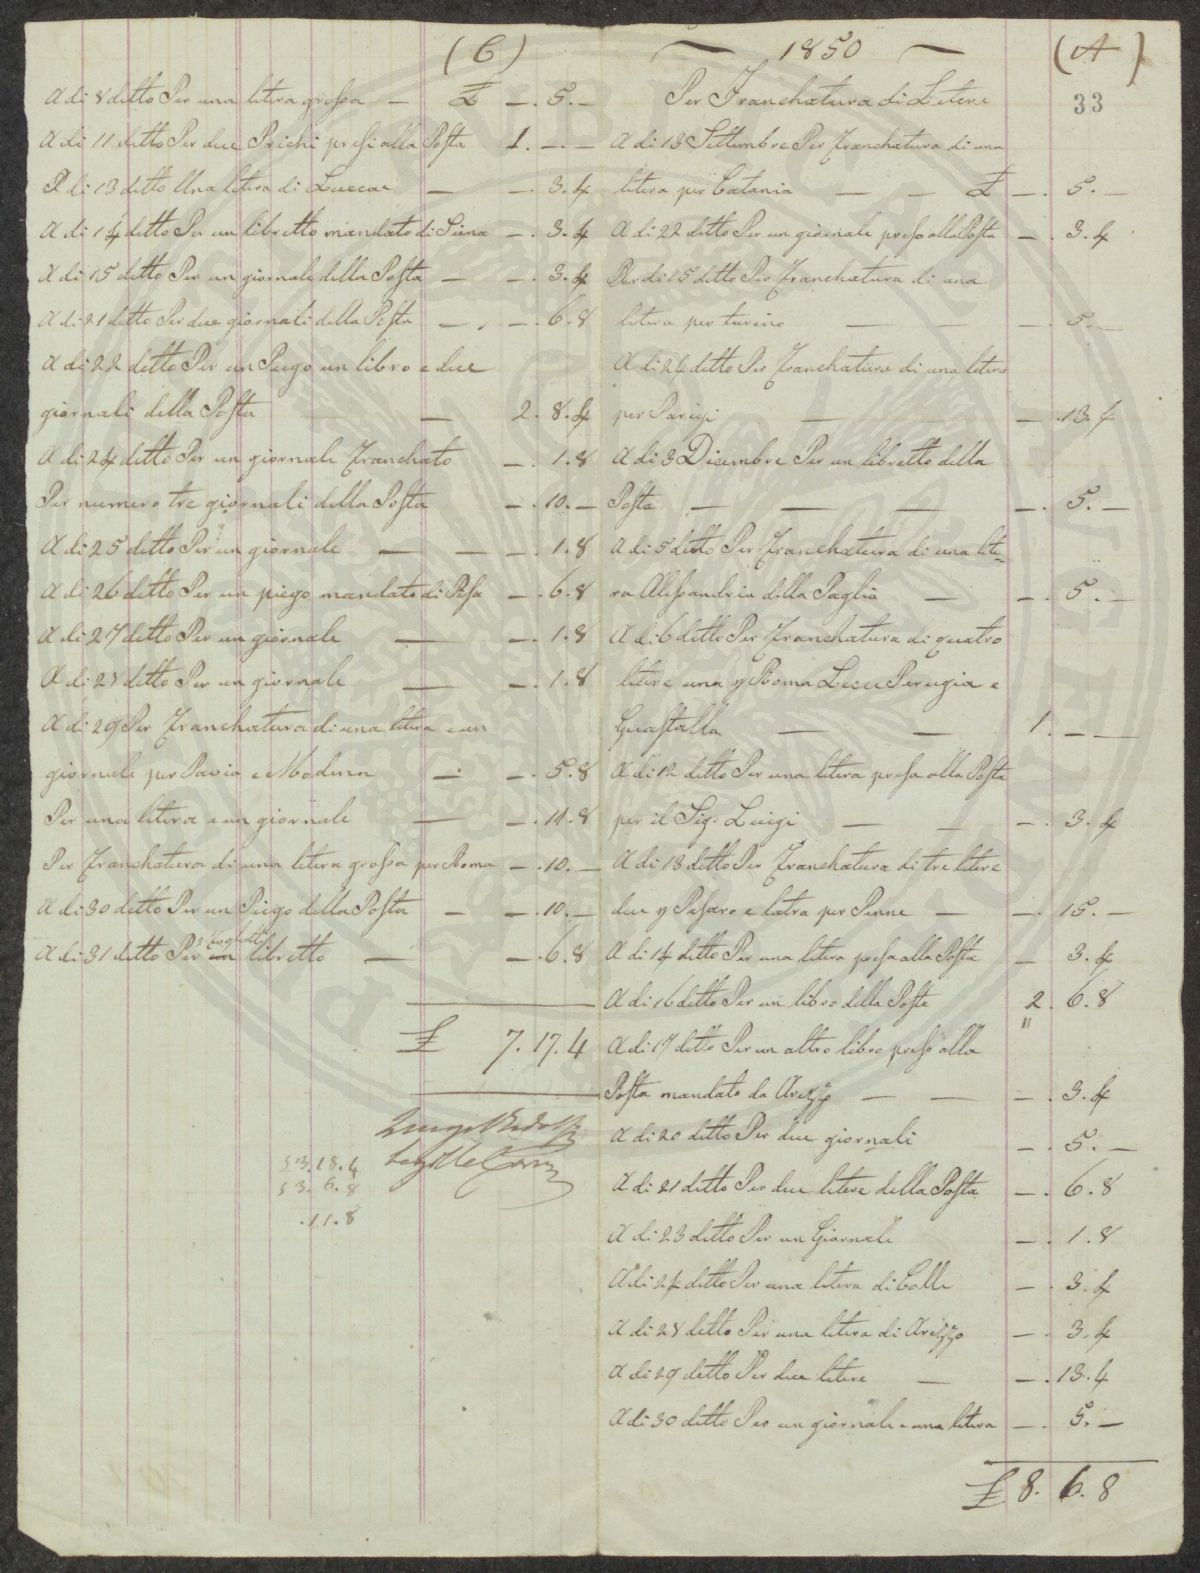 (C)
A di 8 ditto Per una litera grossa — £ —. 5. —
A di 11 ditto Per due Prichi presi alla Posta 1. — . —
A di 13 ditto Una litera di Lucca — —. 3. 4
A di 14 ditto Per un libretto mandato di Siena —. 3. 4
A di 15 ditto Per un giornale della Posta — —. 3. 4
A di 21 ditto Per due giornali della Posta — . —. 6. 8
A di 22 ditto Per un Piego un libro e due
giornali della Posta — 2. 8. 4
A di 24 ditto Per un giornale franchato —. 1. 8
Per numero tre giornali della Posta —. 10. —
A di 25 ditto Per un giornale — — —. 1. 8
A di 26 ditto Per un piego mandato di Pisa —. 6. 8
A di 27 ditto Per un giornale — —. 1. 8
A di 28 ditto Per un giornale — —. 1. 8
A di 29 Per franchatura di una litera e un
giornale per Pavia e Modena — —. 5. 8
Per una litera e un giornale — —. 11. 8
Per franchatura di una litera grossa per Roma —. 10. —
A di 30 ditto Per un Piego della Posta — —. 10. —
A di 31 ditto Per un libretto — —. 6. 8
£ 7. 17. 4
13. 18. 4
3. 6. 8
. 11. 8
— 1850 — (A)
33
Per Franchatura di Letere
A di 13 Settembre Per franchatura di una
litera per Catania — — £ —. 5. —
A di 22 ditto Per un giornale preso alla Posta —. 3. 4
A di 15 ditto Per franchatura di una
litera per turino — — —. 5. —
A di 24 ditto Per franchatura di una litera
per Parigi — — —. 13. 4
A di 3 Dicembre Per un libretto della
Posta — — — —. 5. —
A di 5 ditto Per franchatura di una lite-
ra Alessandria della Paglia — —. 5. —
A di 6 ditto Per franchatura di quatro
litere una p Roma Lecce Perugia e
Guastalla — — 1. — —
A di 12 ditto Per una litera presa alla Posta
per il Sig. Luigi — — —. 3. 4
A di 13 ditto Per franchatura di tre litere
due p Pesaro e latra per Penne — —. 15. —
A di 14 ditto Per una litera presa alla Posta — 3. 4
A di 16 ditto Per un libro della Posta 2. 6. 8
A di 17 ditto Per un altro libro preso alla
Posta mandato da Arezzo — — —. 3. 4
A di 20 ditto Per due giornali —. 5. —
A di 21 ditto Per due litere della Posta —. 6. 8
A di 23 ditto Per un Giornale —. 1. 8
A di 24 ditto Per una litera di Colle —. 3. 4
A di 28 ditto Per una litera di Arezzo —. 3. 4
A di 29 ditto Per due litere — —. 13. 4
A di 30 ditto Per un giornale e una litera —. 5. —
£ 8. 6. 8